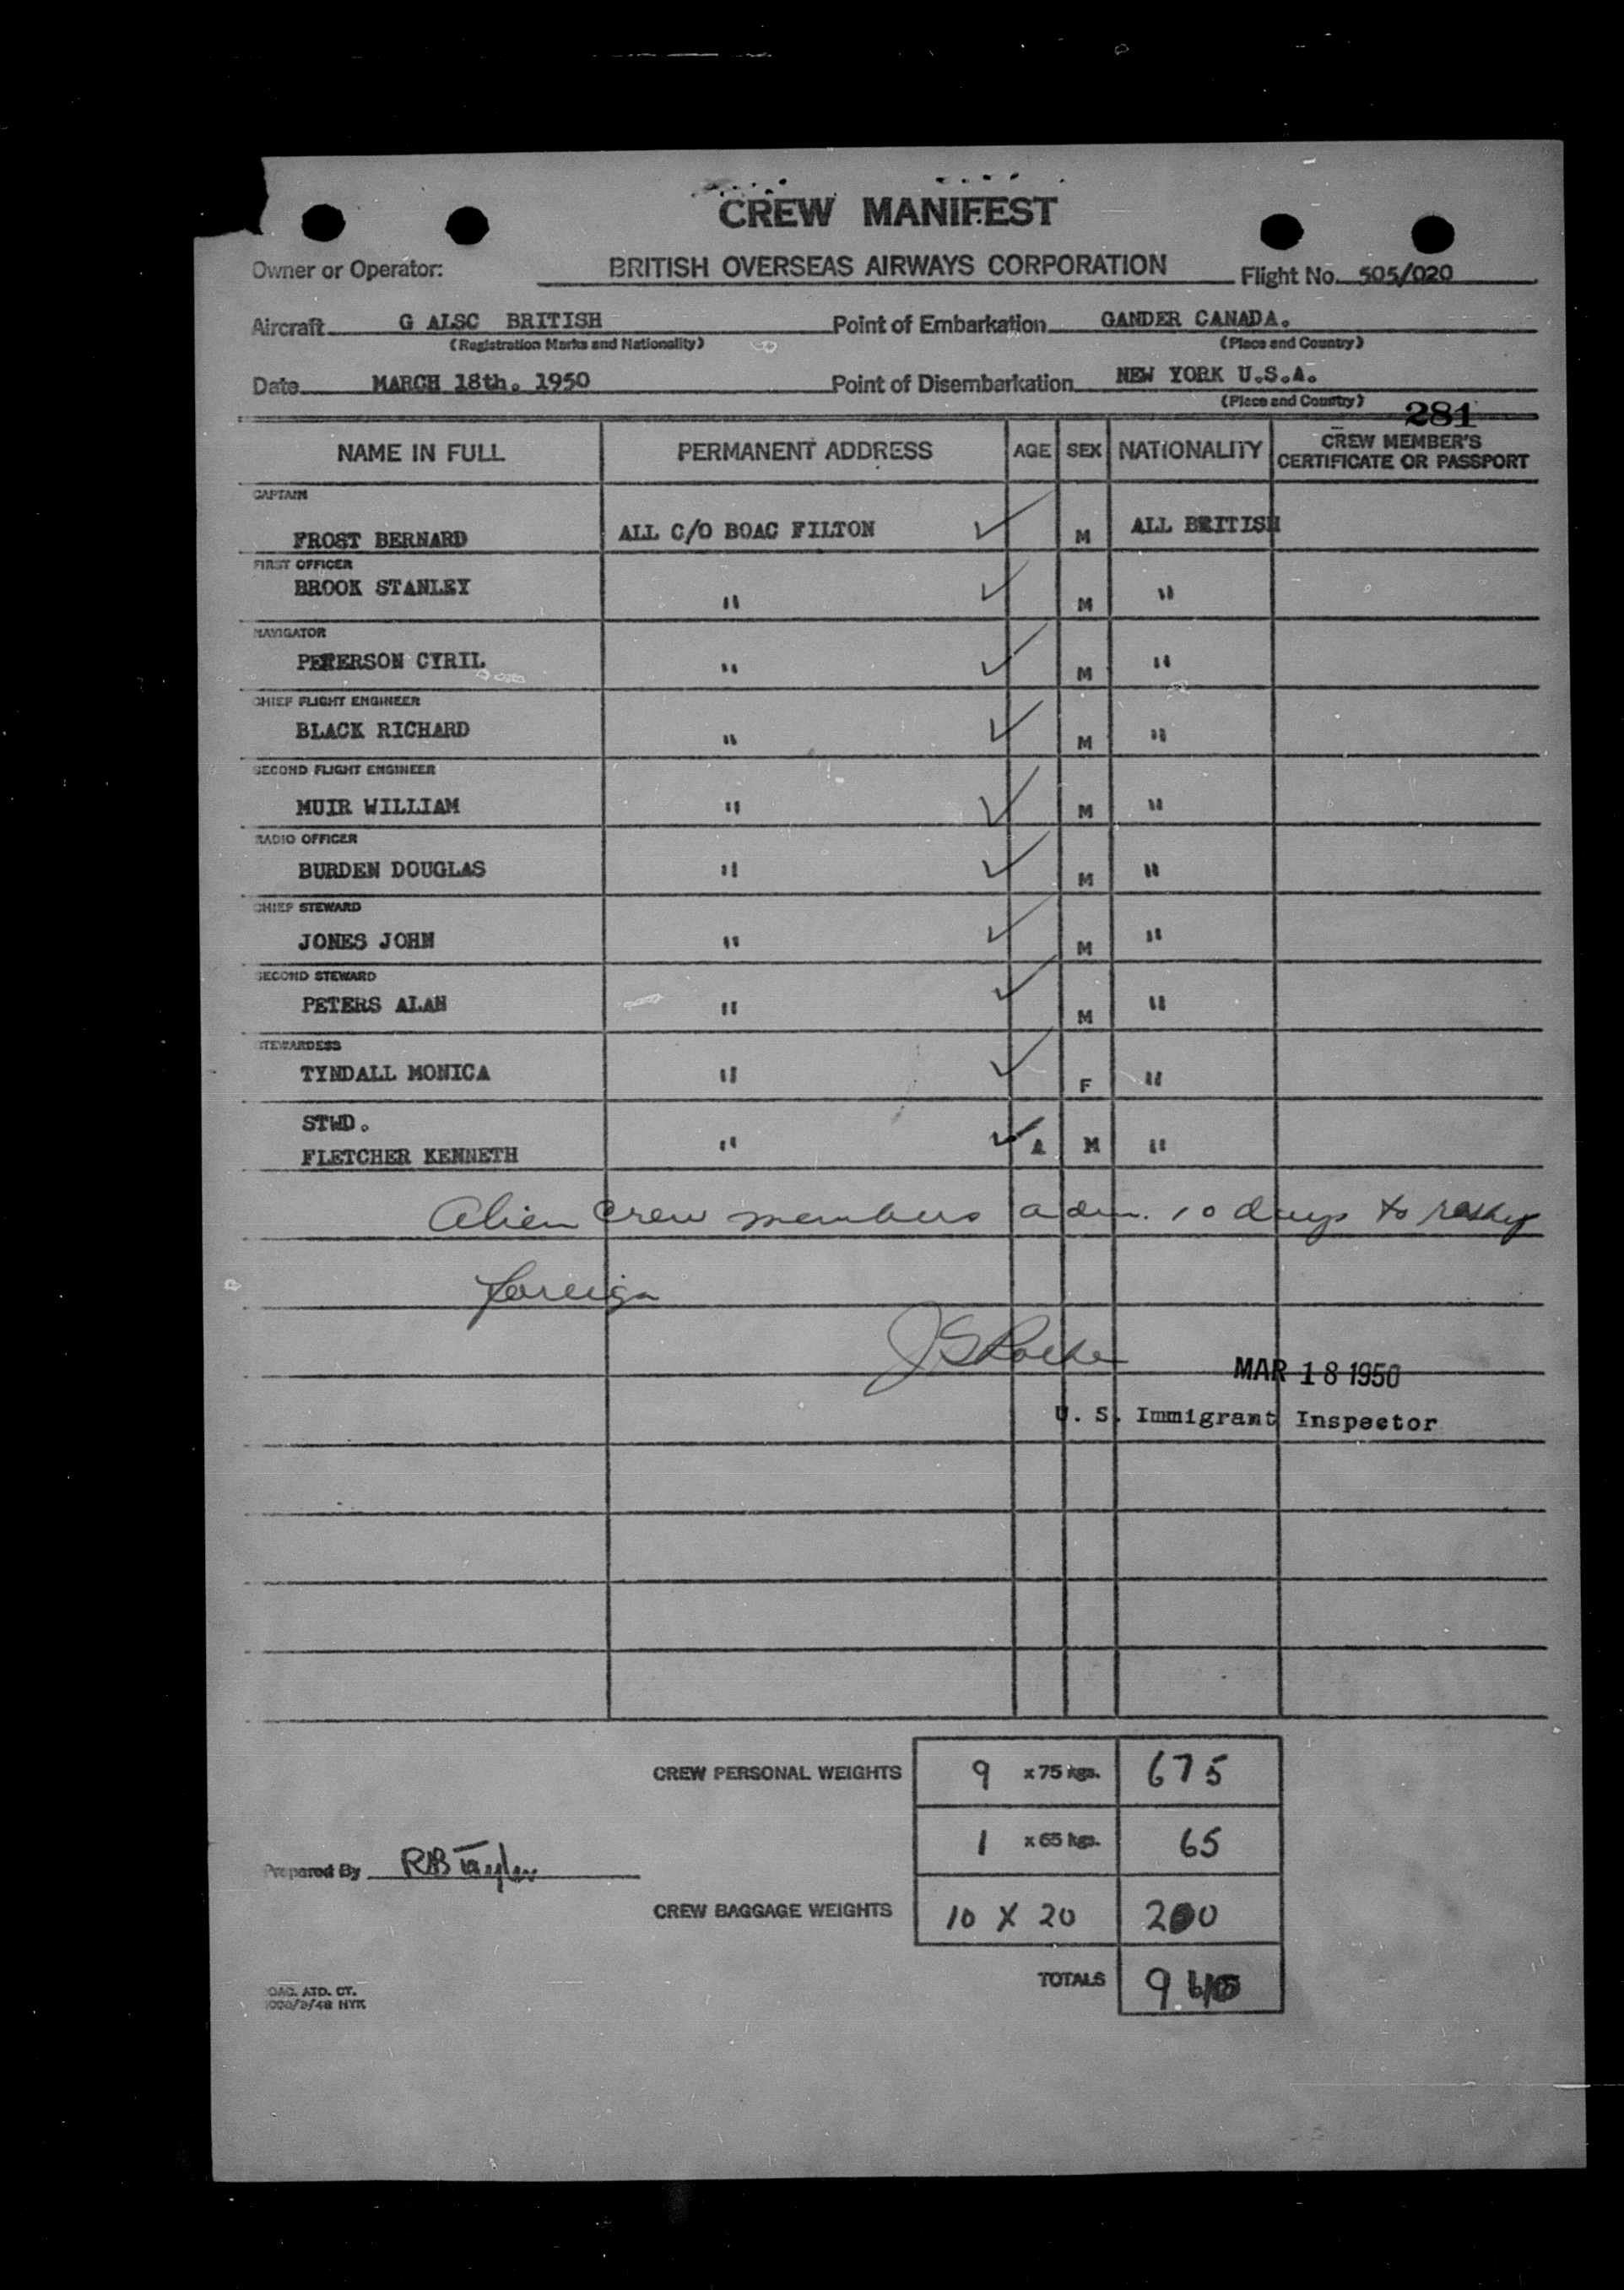 CREW MANIFEST
Owner or Operator: BRITISH OVERSEAS AIRWAYS CORPORATION Flight No. 505/020
Aircraft G ALSC BRITISH Point of Embarkation GANDER CANADA.
(Registration Marks and Nationality) (Place and Country)
Date MARCH 18th. 1950 Point of Disembarkation NEW YORK U.S.A.
(Place and Country)
281
NAME IN FULL PERMANENT ADDRESS AGE SEX NATIONALITY CREW MEMBER'S CERTIFICATE OR PASSPORT
CAPTAIN
FROST BERNARD ALL C/O BOAC FILTON ✓ M ALL BRITISH
FIRST OFFICER
BROOK STANLEY " ✓ M "
NAVIGATOR
PETERSON CYRIL " ✓ M "
CHIEF FLIGHT ENGINEER
BLACK RICHARD " ✓ M "
SECOND FLIGHT ENGINEER
MUIR WILLIAM " ✓ M "
RADIO OFFICER
BURDEN DOUGLAS " ✓ M "
CHIEF STEWARD
JONES JOHN " ✓ M "
SECOND STEWARD
PETERS ALAN " ✓ M "
STEWARDESS
TYNDALL MONICA " ✓ F "
STWD.
FLETCHER KENNETH " ✓ A M "
Alien crew members adm. 10 days to reship
foreign
MAR 18 1950
U. S. Immigrant Inspector
CREW PERSONAL WEIGHTS 9 x 75 kgs. 675
1 x 65 kgs. 65
Prepared By RB Taylor
CREW BAGGAGE WEIGHTS 10 X 20 200
TOTALS